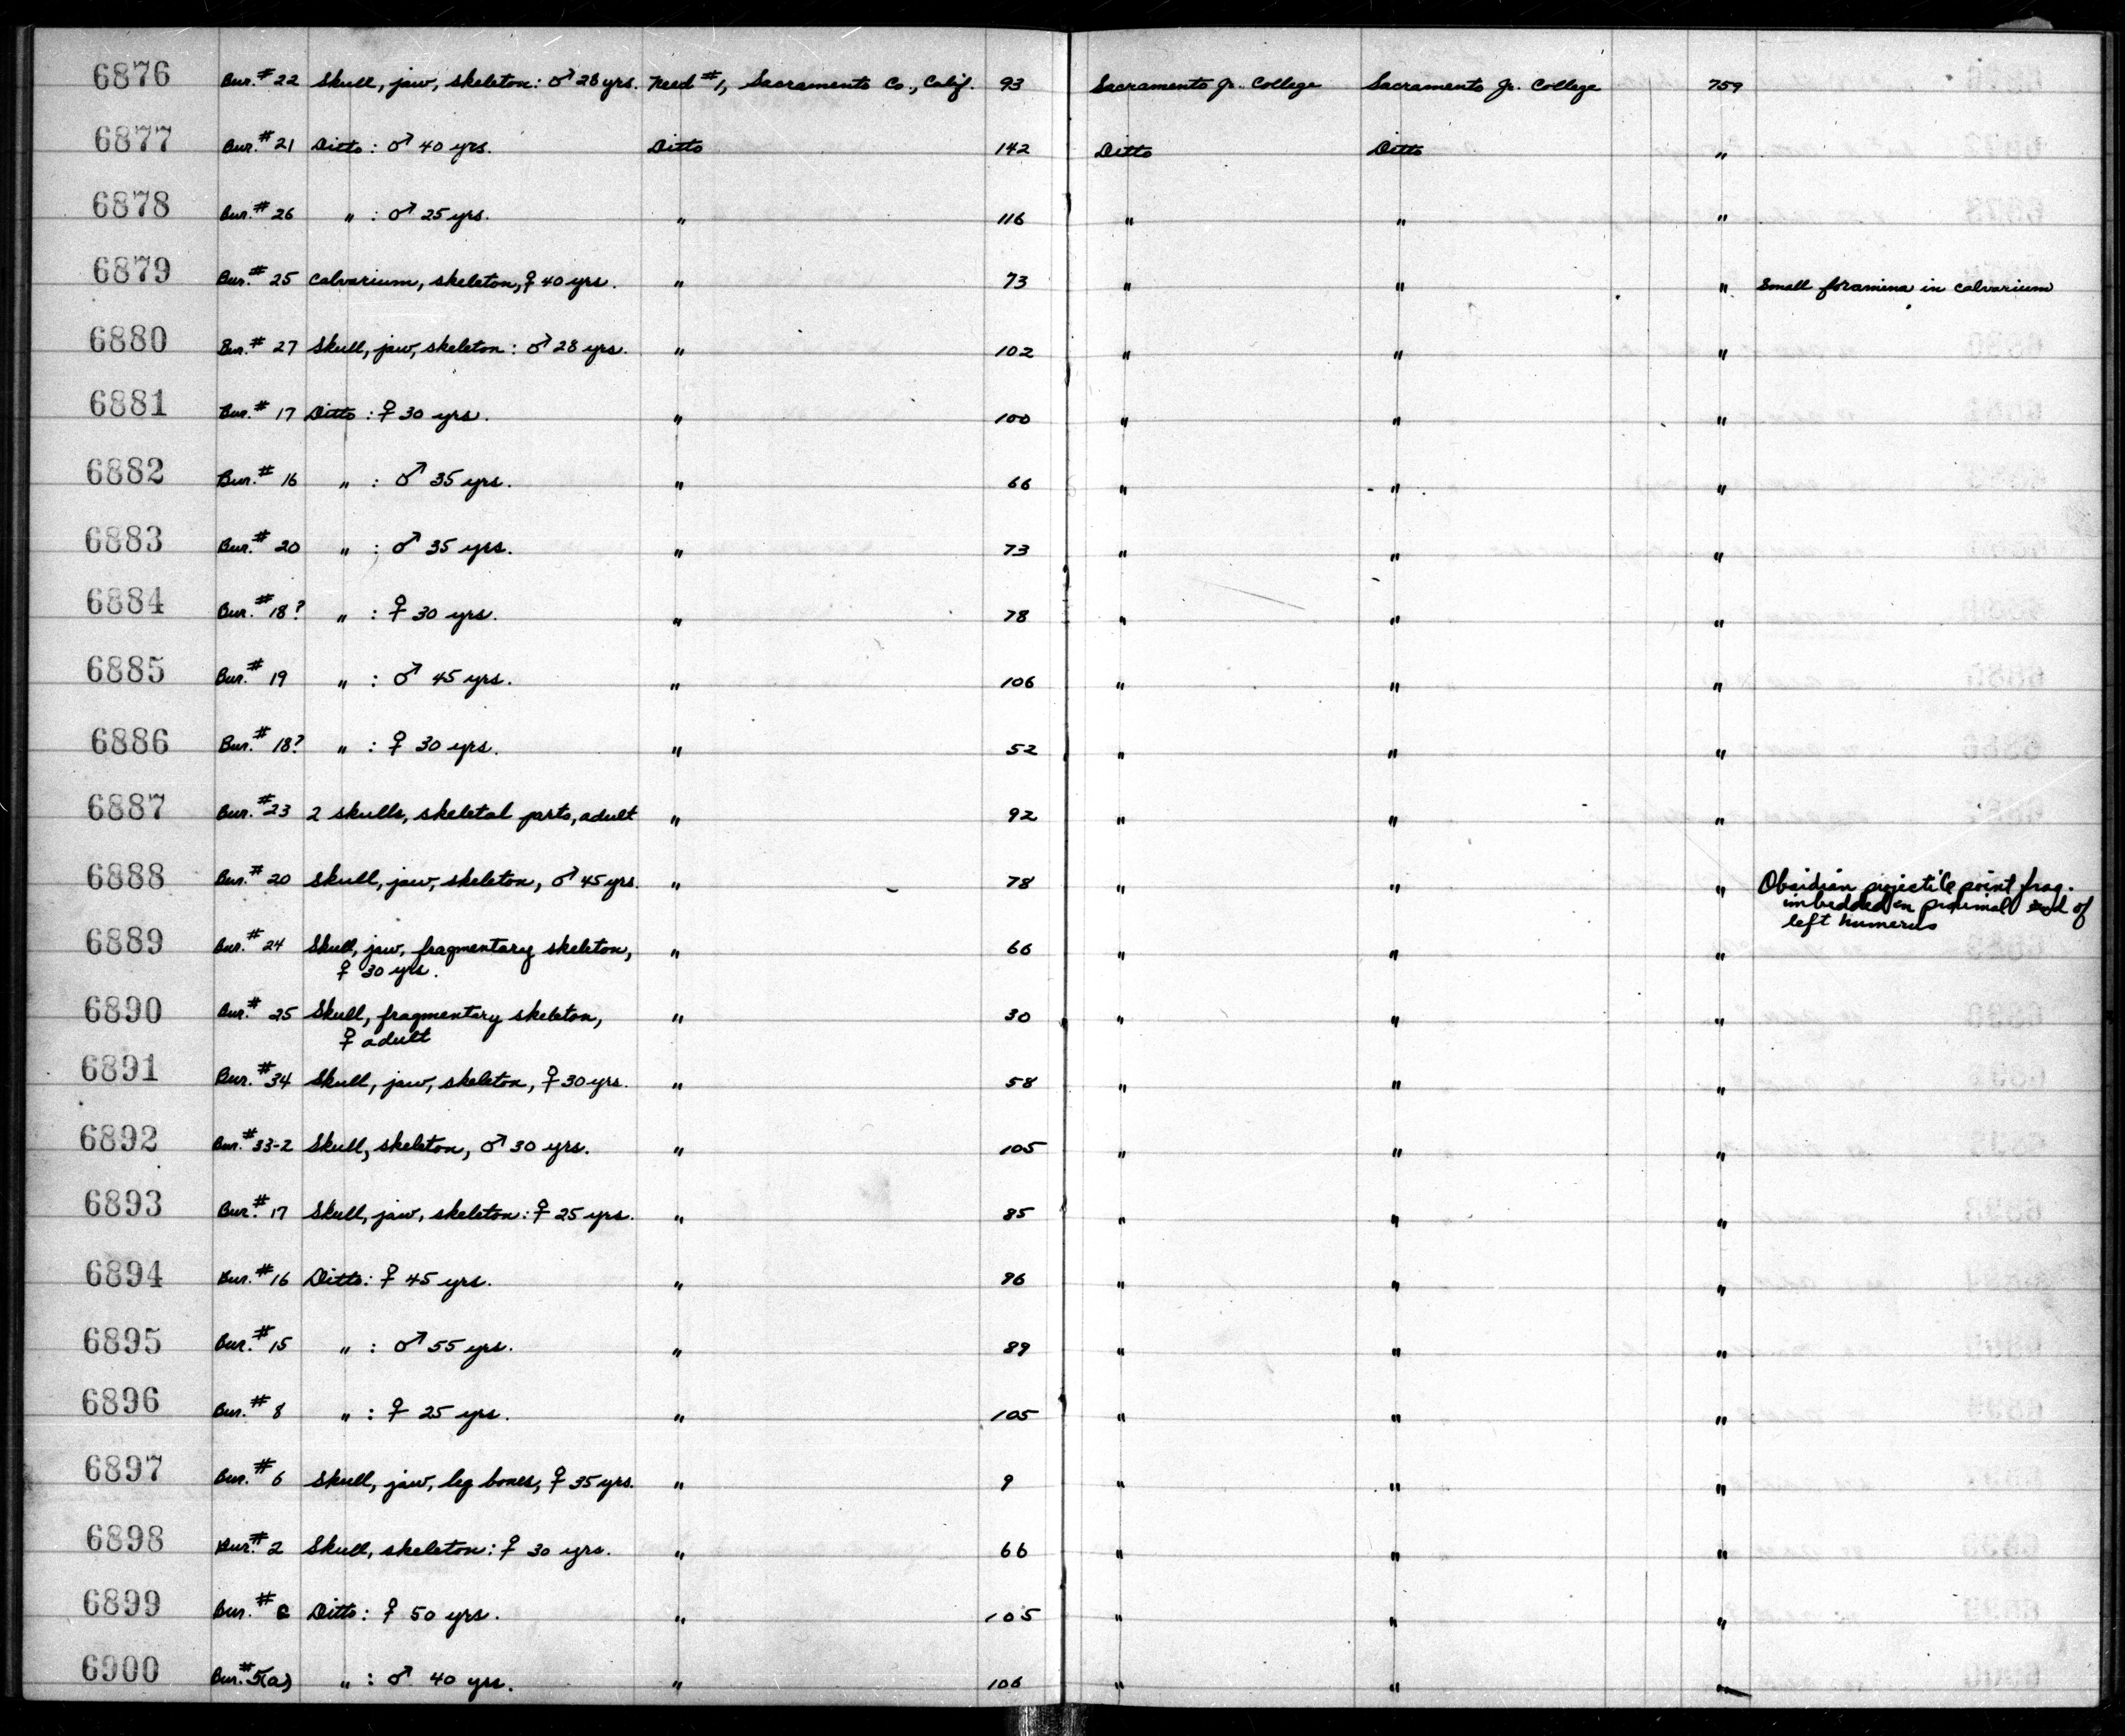 6876 Bur. #22 Skull, jaw, skeleton: ♂ 28 yrs. Need #1, Sacramento Co., Calif. 93 Sacramento Jr. College Sacramento Jr. College 759
6877 Bur. #21 Ditto: ♂ 40 yrs. Ditto 142 Ditto Ditto "
6878 Bur. #26 " : ♂ 25 yrs. " 116 " " "
6879 Bur. #25 Calvarium, skeleton, ♀ 40 yrs. " 73 " " " Small foramina in calvarium
6880 Bur. #27 Skull, jaw, skeleton: ♂ 28 yrs. " 102 " " "
6881 Bur. #17 Ditto: ♀ 30 yrs. " 100 " " "
6882 Bur. #16 " : ♂ 35 yrs. " 66 " " "
6883 Bur. #20 " : ♂ 35 yrs. " 73 " " "
6884 Bur. #18? " : ♀ 30 yrs. " 78 " " "
6885 Bur. #19 " : ♂ 45 yrs. " 106 " " "
6886 Bur. #18? " : ♀ 30 yrs. " 52 " " "
6887 Bur. #23 2 skulls, skeletal parts, adult " 92 " " "
6888 Bur. #20 Skull, jaw, skeleton, ♂ 45 yrs. " 78 " " " Obsidian projectile point frag.
imbedded in proximal end of
left humerus
6889 Bur. #24 Skull, jaw, fragmentary skeleton, " 66 " " "
♀ 30 yrs.
6890 Bur. #25 Skull, fragmentary skeleton, " 30 " " "
♀ adult
6891 Bur. #34 Skull, jaw, skeleton, ♀ 30 yrs. " 58 " " "
6892 Bur. #33-2 Skull, skeleton, ♂ 30 yrs. " 105 " " "
6893 Bur. #17 Skull, jaw, skeleton: ♀ 25 yrs. " 85 " " "
6894 Bur. #16 Ditto: ♀ 45 yrs. " 96 " " "
6895 Bur. #15 " : ♂ 55 yrs. " 89 " " "
6896 Bur. #8 " : ♀ 25 yrs. " 105 " " "
6897 Bur. #6 Skull, jaw, leg bones, ♀ 35 yrs. " 9 " " "
6898 Bur. #2 Skull, skeleton: ♀ 30 yrs. " 66 " " "
6899 Bur. # Ditto: ♀ 50 yrs. " 105 " " "
6900 Bur. #5(a) " : ♂ 40 yrs. " 106 " " "